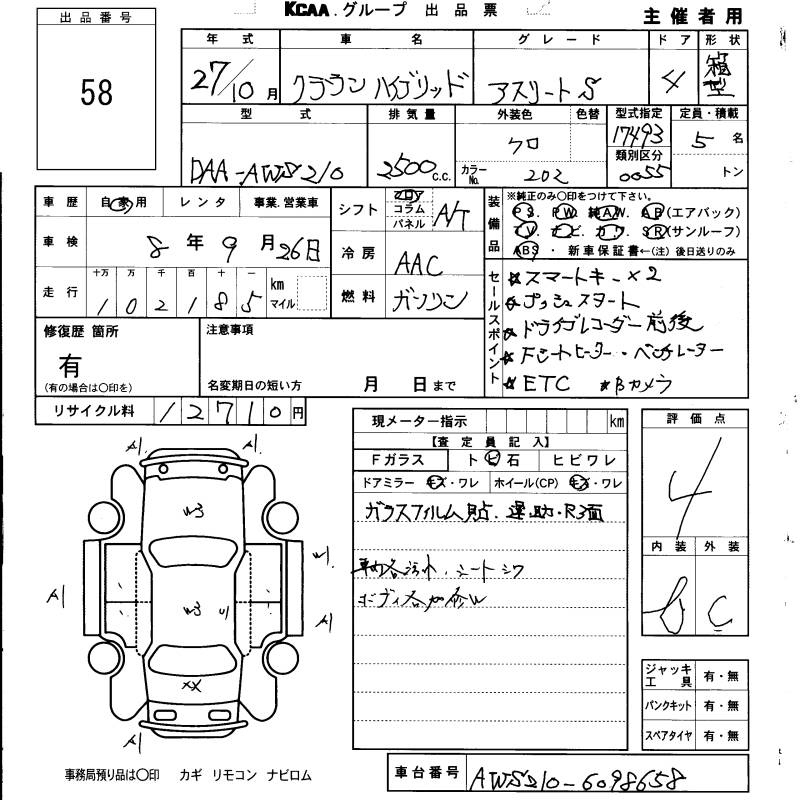 KCAA.グループ 出品票
主催者用
出品番号
58
年式 車名 グレード ドア 形状
27/10月 クラウン ハイブリッド アスリートS 4 箱型
型式 排気量 外装色 色替 型式指定 定員・積載
DAA-AWS210 2500c.c. クロ 17493 5名
カラーNo. 202 類別区分 0055 トン
車歴 自家用 レンタ 事業.営業車
車検 8年9月26日
走行 十万 万 千 百 十 一 km マイル
1 0 2 1 8 5
シフト フロア コラム パネル A/T
冷房 AAC
燃料 ガソリン
装備品
※純正のみ〇印をつけて下さい。
PS. PW. 純AW. AB(エアバック)
TV. ナビ. カワ. SR(サンルーフ)
ABS ・ 新車保証書←(注)後日送りのみ
セールスポイント
★スマートキー×2
★プッシュスタート
★ドライブレコーダー前後
★Fシートヒーター・ベンチレーター
★ETC ★Bカメラ
修復歴 箇所
有
(有の場合は〇印を)
注意事項
名変期日の短い方 月 日まで
リサイクル料 12710円
現メーター指示 km
【査定員記入】
Fガラス トビ石 ヒビワレ
ドアミラー キズ・ワレ ホイール(CP) キズ・ワレ
ガラスフィルム貼.運.助.R3面
車内各汚れ.シートシワ
ボディ各加修W
評価点
4
内装 外装
b C
ジャッキ工具 有・無
パンクキット 有・無
スペアタイヤ 有・無
A1 A1
W3
W1
A1 W3 A1
XX
A1
事務局預り品は〇印 カギ リモコン ナビロム
車台番号 AWS210-6098658